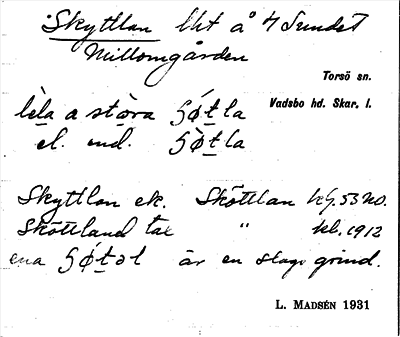 Skyttlan lht å 4 Sundet
Millomgården
Torsö sn.
Vadsbo hd. Skar. l.
lèla a stòra ʃǿtla
el. end. ʃø̀tla
Skyttlan ek. Sköttlan hfj. 53 NO.
Sköttland tax " kl. 1912
ena ʃǿtəl är en slags grind.
L. MADSÉN 1931